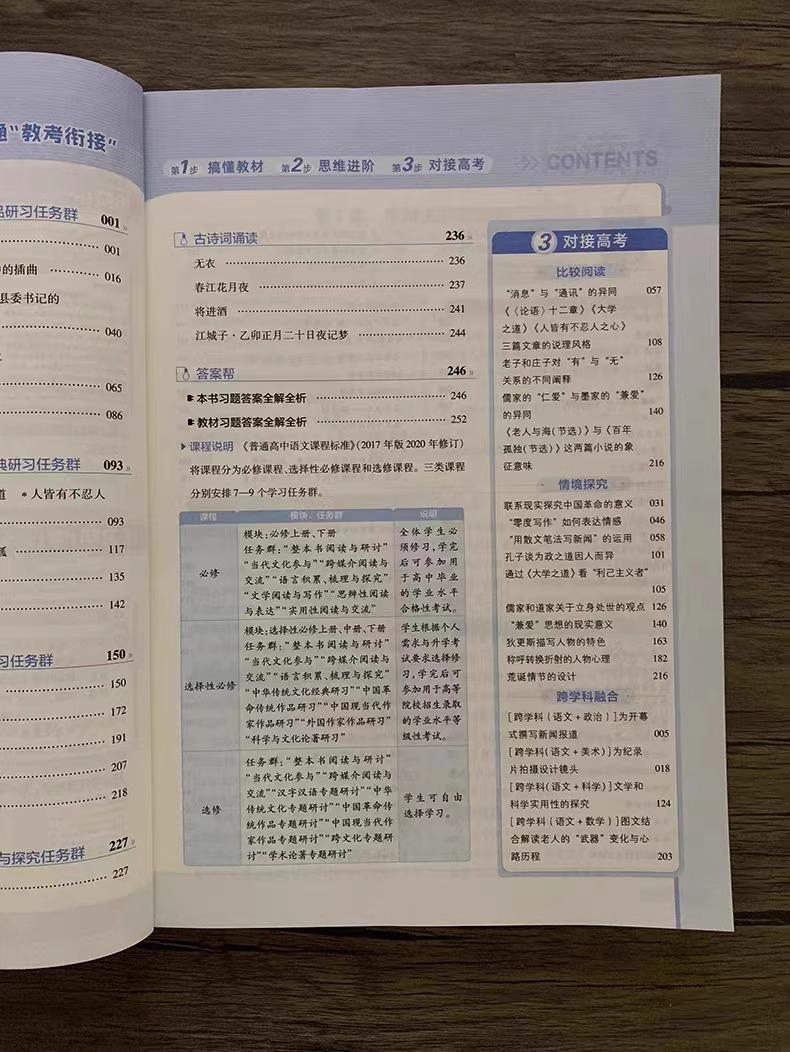 通“教考衔接”
品研习任务群 001
001
中的插曲 016
县委书记的
040
065
086
典研习任务群 093
道 *人皆有不忍人
093
117
135
142
习任务群 150
150
172
191
207
218
227
与探究任务群
227
第1步 搞懂教材 第2步 思维进阶 第3步 对接高考
CONTENTS
古诗词诵读 236
无衣 236
春江花月夜 237
将进酒 241
江城子·乙卯正月二十日夜记梦 244
答案帮 246
本书习题答案全解全析 246
教材习题答案全解全析 252
课程说明 《普通高中语文课程标准》(2017年版2020年修订)
将课程分为必修课程、选择性必修课程和选修课程。三类课程
分别安排7—9个学习任务群。
课程 模块、任务群 说明
必修
模块:必修上册、下册
任务群:“整本书阅读与研讨”
“当代文化参与”“跨媒介阅读与
交流”“语言积累、梳理与探究”
“文学阅读与写作”“思辨性阅读
与表达”“实用性阅读与交流”
全体学生必
须修习,学完
后可参加用
于高中毕业
的学业水平
合格性考试。
选择性必修
模块:选择性必修上册、中册、下册
任务群:“整本书阅读与研讨”
“当代文化参与”“跨媒介阅读与
交流”“语言积累、梳理与探究”
“中华传统文化经典研习”“中国革
命传统作品研习”“中国现当代作
家作品研习”“外国作家作品研习”
“科学与文化论著研习”
学生根据个人
需求与升学考
试要求选择修
习,学完后可
参加用于高等
院校招生录取
的学业水平等
级性考试。
选修
任务群:“整本书阅读与研讨”
“当代文化参与”“跨媒介阅读与
交流”“汉字汉语专题研讨”“中华
传统文化专题研讨”“中国革命传
统作品专题研讨”“中国现当代作
家作品专题研讨”“跨文化专题研
讨”“学术论著专题研讨”
学生可自由
选择学习。
3 对接高考
比较阅读
“消息”与“通讯”的异同 057
《〈论语〉十二章》《大学
之道》《人皆有不忍人之心》
三篇文章的说理风格 108
老子和庄子对“有”与“无”
关系的不同阐释 126
儒家的“仁爱”与墨家的“兼爱”
的异同 140
《老人与海(节选)》与《百年
孤独(节选)》这两篇小说的象
征意味 216
情境探究
联系现实探究中国革命的意义 031
“零度写作”如何表达情感 046
“用散文笔法写新闻”的运用 058
孔子谈为政之道因人而异 101
通过《大学之道》看“利己主义者”
105
儒家和道家关于立身处世的观点 126
“兼爱”思想的现实意义 140
狄更斯描写人物的特色 163
称呼转换折射的人物心理 182
荒诞情节的设计 216
跨学科融合
[跨学科(语文+政治)]为开幕
式撰写新闻报道 005
[跨学科(语文+美术)]为纪录
片拍摄设计镜头 018
[跨学科(语文+科学)]文学和
科学实用性的探究 124
[跨学科(语文+数学)]图文结
合解读老人的“武器”变化与心
路历程 203